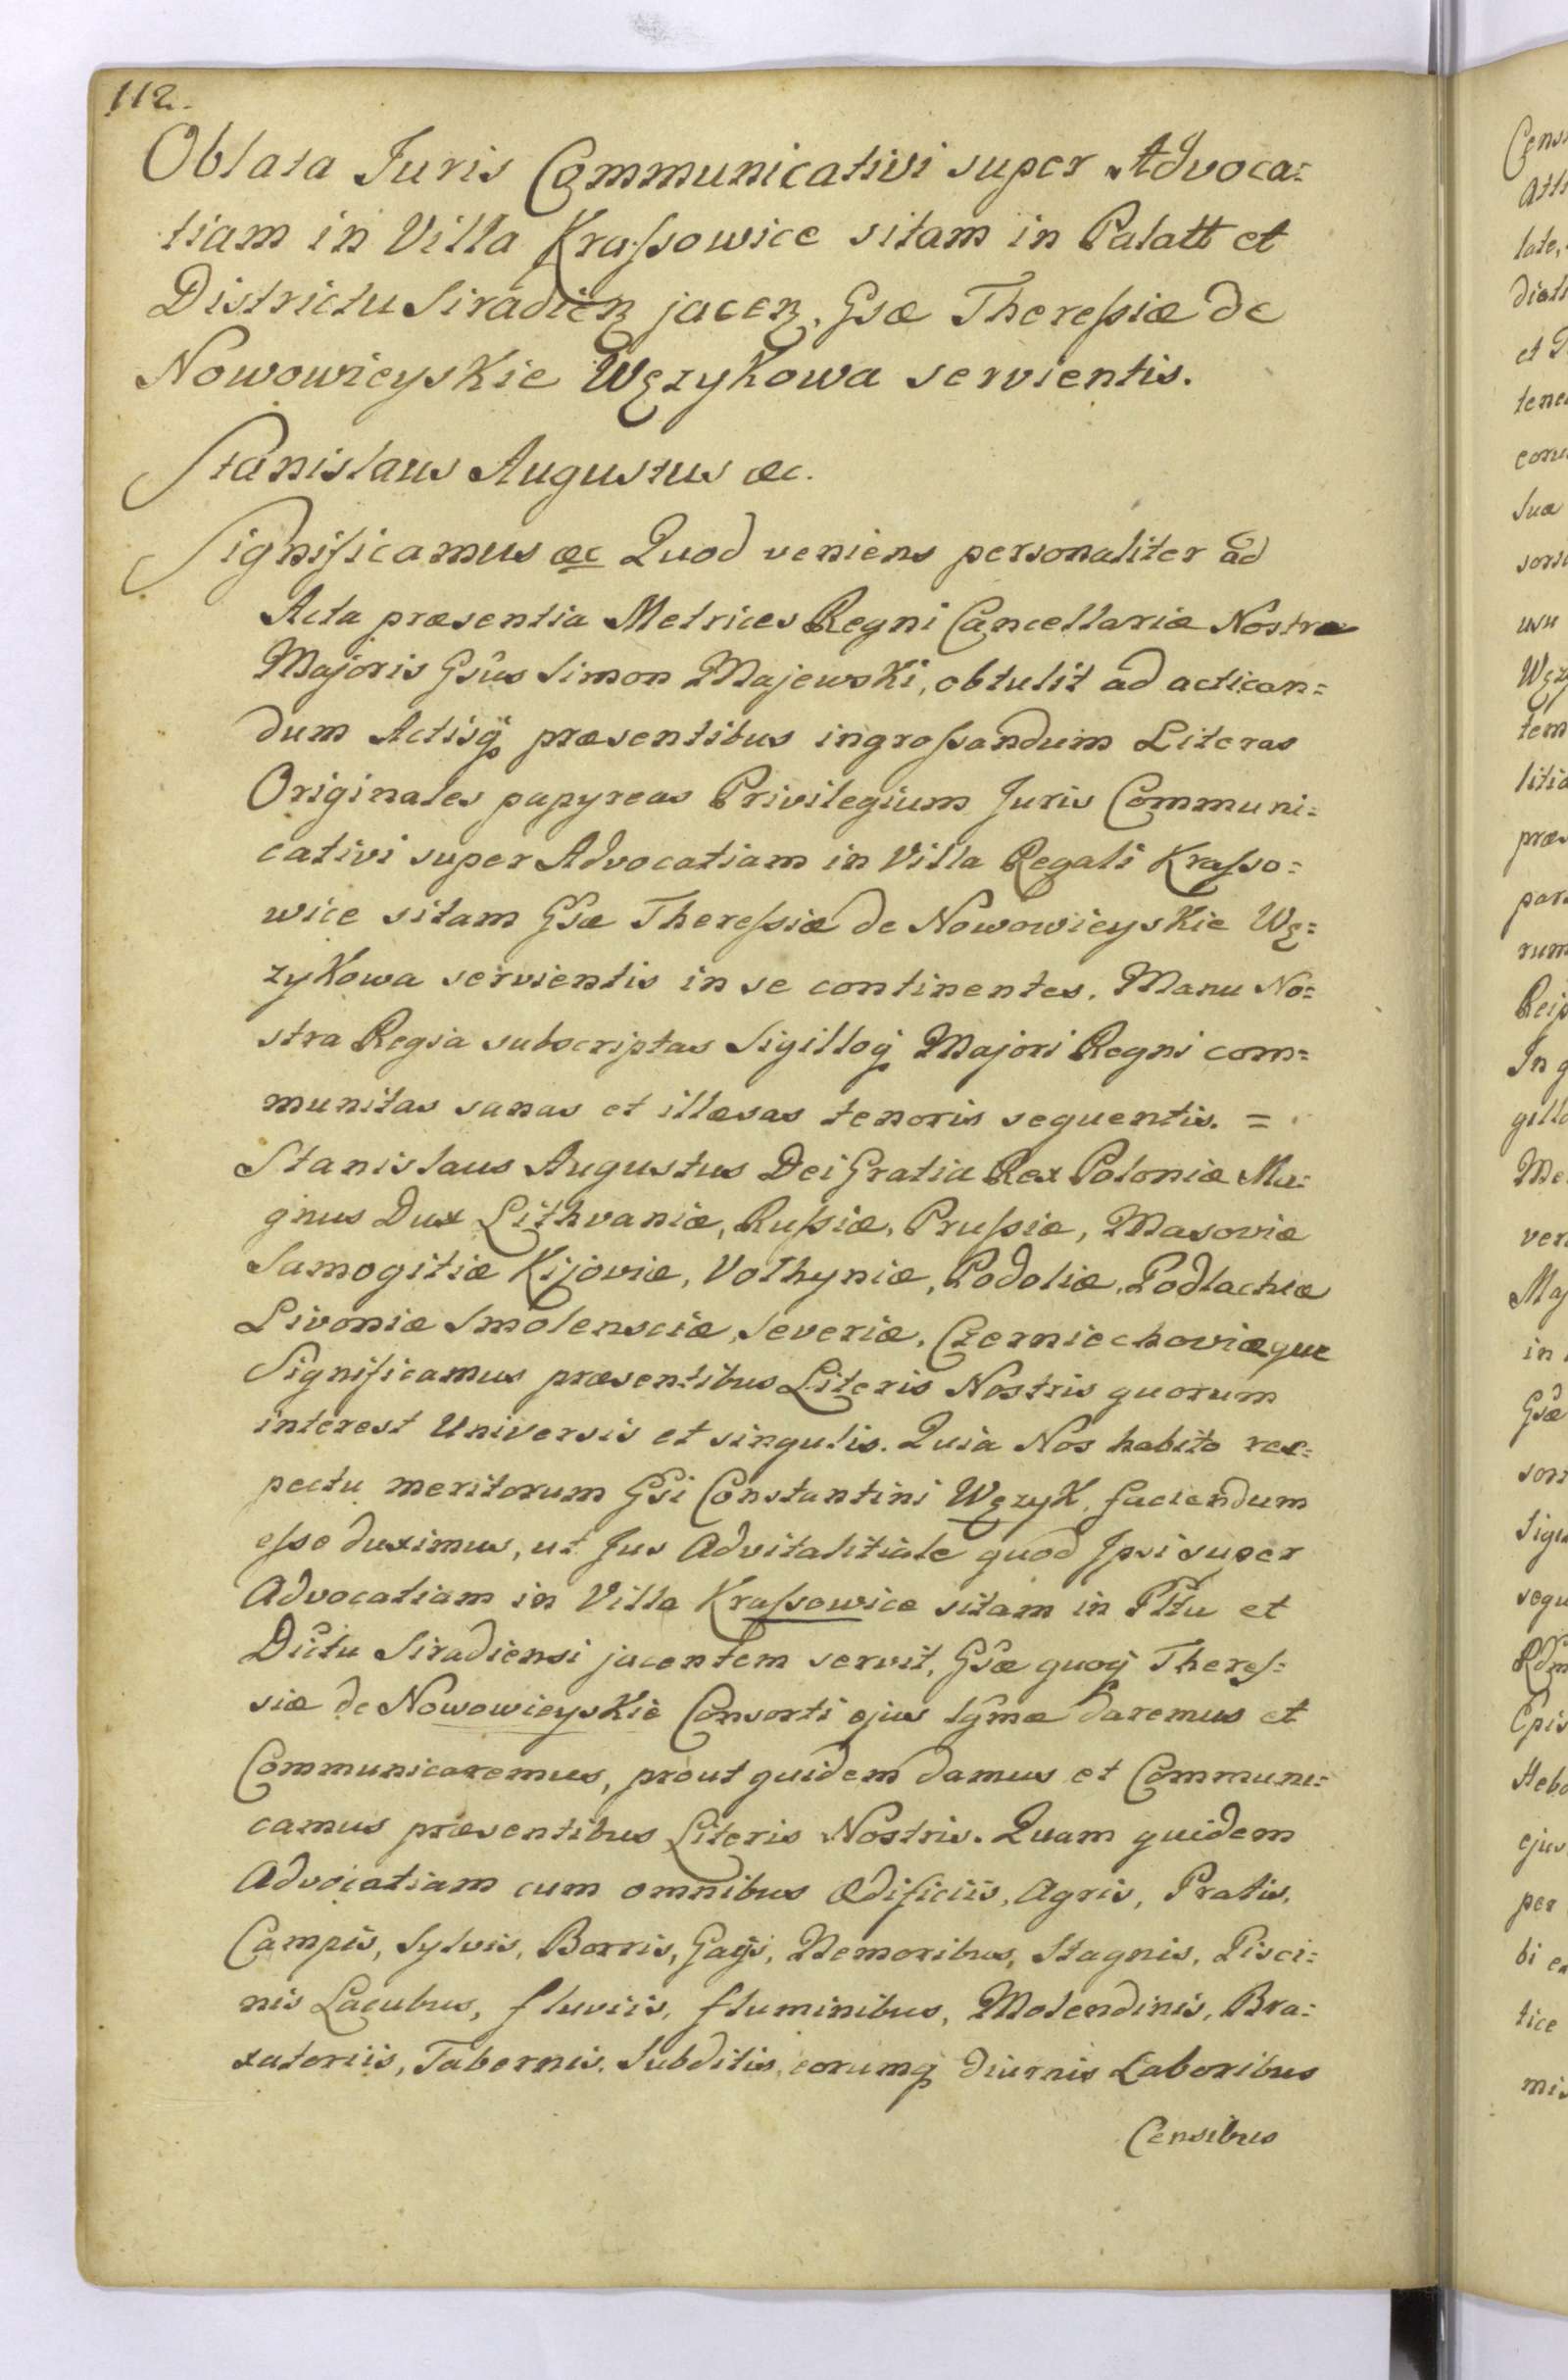 112.
Oblata Juris Communicativi super Advoca=
tiam in Villa Kraſsowice sitam in Palatt et
Districtu Siradien jacen. Gsæ Thereſsiæ de
Nowowieyskie Węzykowa servientis.
Stanislaus Augustus &c.
Significamus &c Quod veniens personaliter ad
Acta præsentia Metrices Regni Cancellariæ Nostræ
Majoris Gsûs Simon Majewski, obtulit ad actican=
dum Actisq́ præsentibus ingroſsandum Literas
Originales papyreas Privilegium Juris Communi=
cativi super Advocatiam in Villa Regali Kraſso=
wice sitam Gsæ Thereſsiæ de Nowowieyskie Wę=
zykowa servientis in se continentes. Manu No=
stra Regia subscriptas Sigilloq́ Majori Regni com=
munitas sanas et illæsas tenoris sequentis. =
Stanislaus Augustus Dei Gratia Rex Poloniæ Ma=
gnus Dux Lithvaniæ, Ruſsiæ, Pruſsiæ, Masoviæ
Samogitiæ Kijoviæ, Volhyniæ, Podoliæ, Podlachiæ
Livoniæ Smolensciæ, Severiæ, Czerniechoviæque
Significamus præsentibus Literis Nostris quorum
interest Universis et singulis. Quia Nos habito res=
pectu meritorum Gsi Constantini Węzyk, faciendum
eſse duximus, ut Jus Advitalitiale quod Ipsi super
Advocatiam in Villa Kraſsowice sitam in Pltu et
Dictu Siradiensi jacentem servit, Gsæ quoq́ Thereſ=
siæ de Nowowieyskie Consorti ejus lgmæ daremus et
Communicaremus, prout quidem damus et Communi=
camus præsentibus Literis Nostris. Quam quidem
Advocatiam cum omnibus Ædificiis, Agris, Pratis,
Campis, Sylvis, Borris, Gaijs, Nemoribus, Stagnis, Pisci=
nis Lacubus, fluviis, fluminibus, Molendinis, Bra=
xatoriis, Tabernis, Subditis, eorumq́ diurnis Laboribus
Censibus